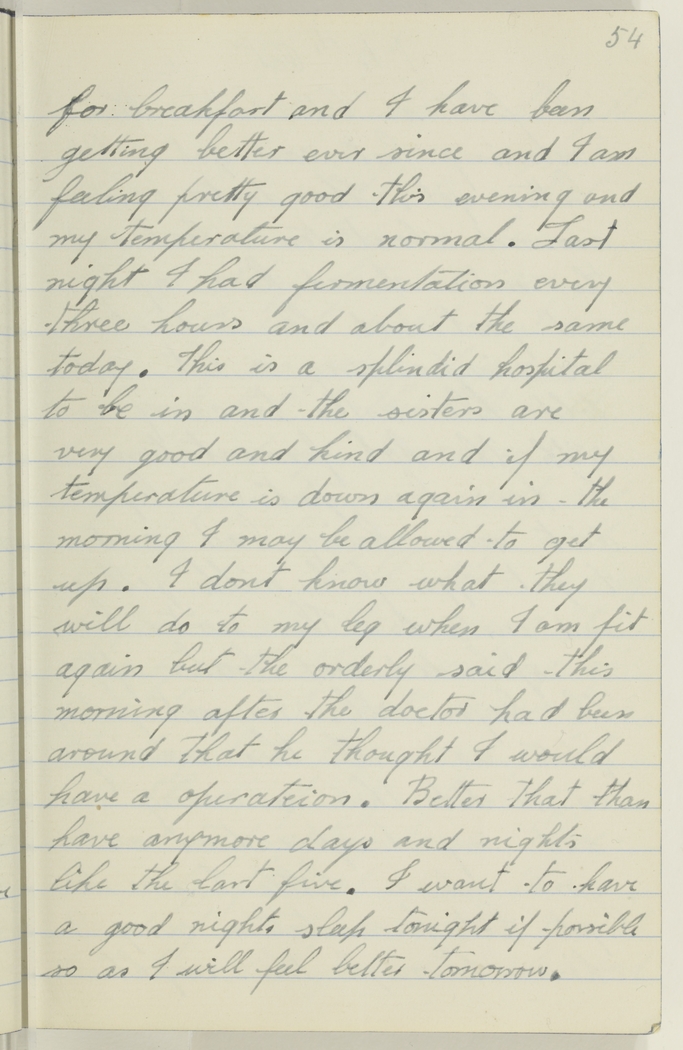 54
for breakfast and I have been
getting better ever since and I am
feeling pretty good this evening and
my temperature is normal. Last
night I had fermentation every
three hours and about the same
today. This is a splindid hospital
to be in and the sisters are
very good and kind and if my
temperature is down again in the
morning I may be allowed to get
up. I dont know what they
will do to my leg when I am fit
again but the orderly said this
morning after the doctor had been
around that he thought I would
have a operateion. Better that than
have anymore days and nights
like the last five. I want to have
a good nights sleep tonight if possible
so as I will feel better tomorrow.